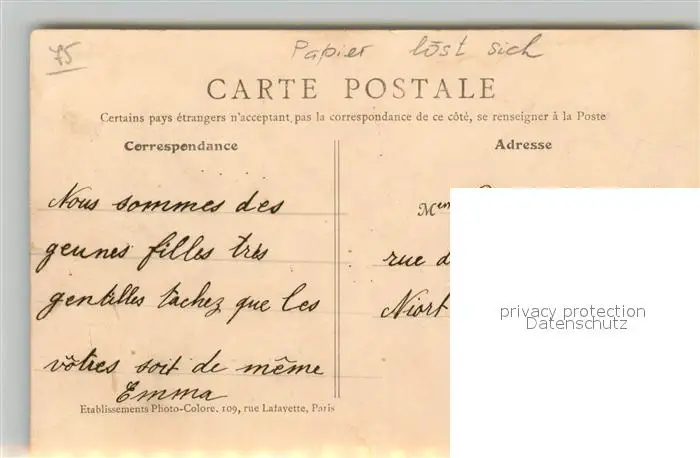 75
Papier löst sich
CARTE POSTALE
Certains pays étrangers n'acceptant pas la correspondance de ce côté, se renseigner à la Poste
Correspondance
Adresse
Nous sommes des
geunes filles très
gentilles tachez que les
vôtres soit de même
Emma
Men
rue d
Niort
privacy protection
Datenschutz
Etablissements Photo-Colore, 109, rue Lafayette, Paris